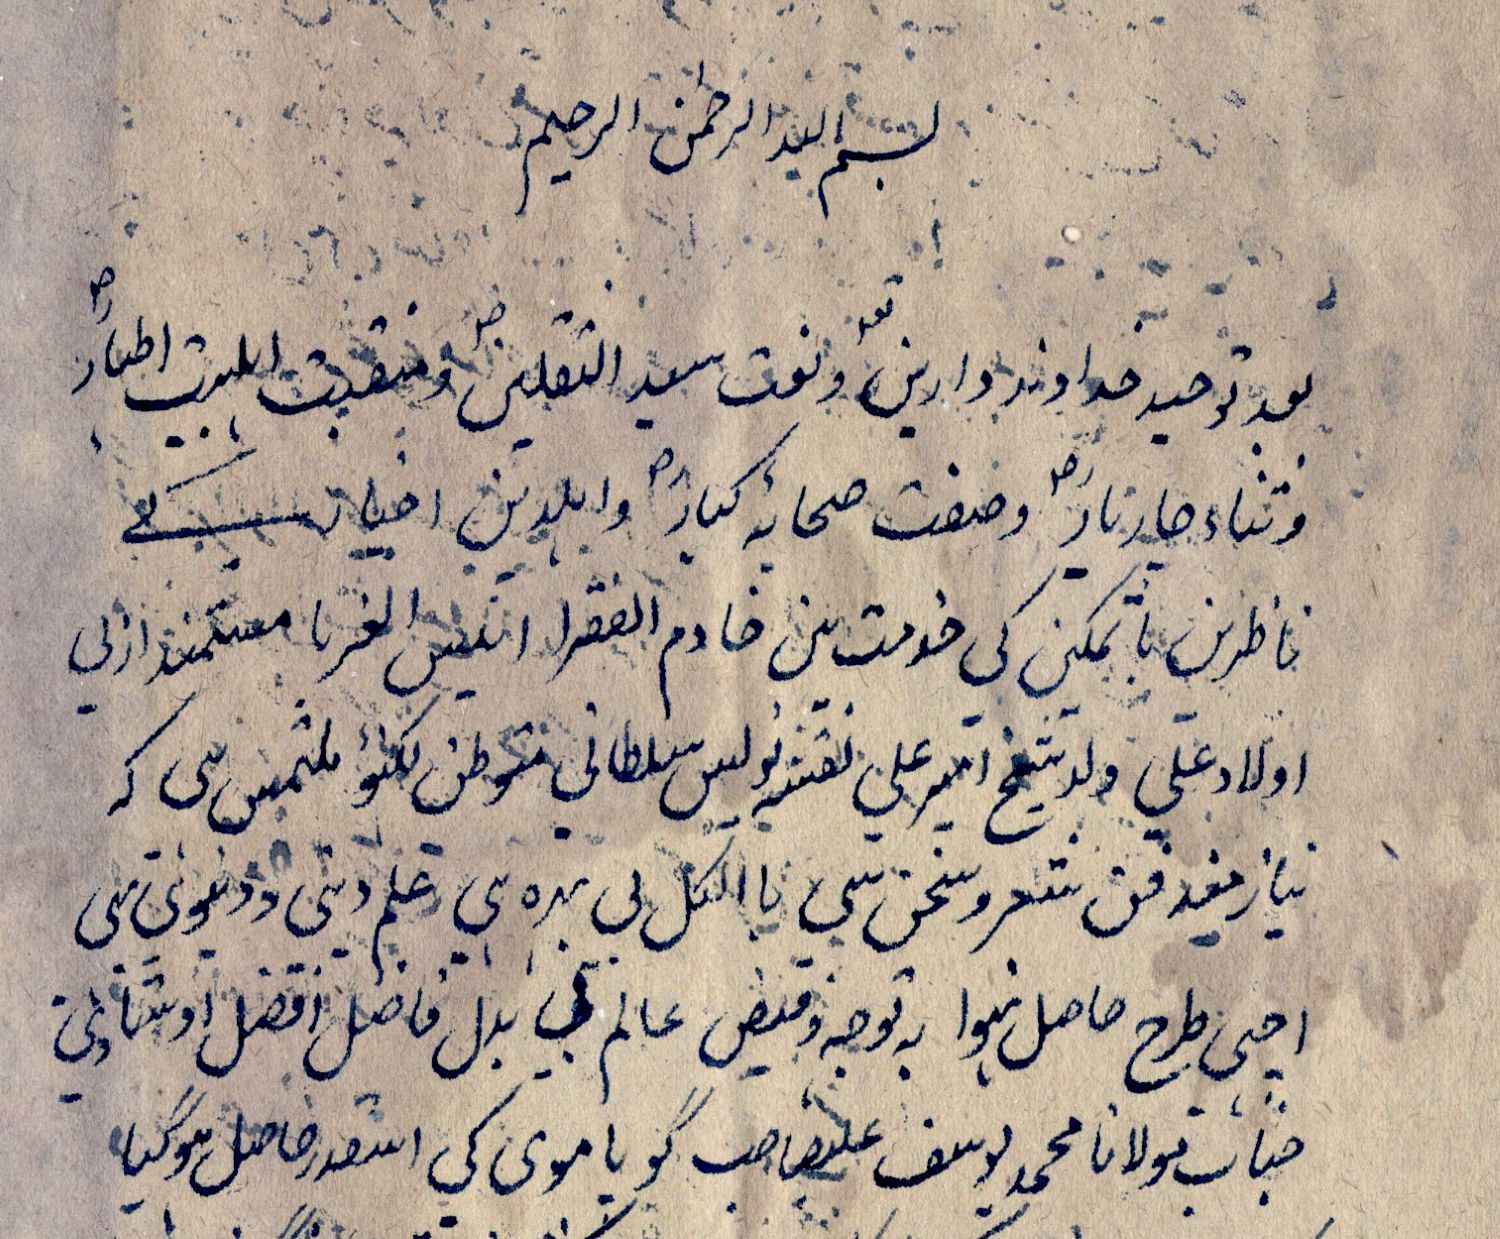 بسم الله الرحمن الرحيم
بعد توحید خداوند دارین تعہ و نعت سید الثقلین ص و منقبت اہلبیت اطہار رض
و ثناء چار یار رض و صفت صحابہ کبار رض و اہلدین اخیار کے
ناظرین باتمکین کی خدمت مین خادم الفقرا انیس الغربا مستمند ازلی
اولاد علی ولد شیخ امیر علی نقشہ نویس سلطانی متوطن لکنؤ ملتمس ہی کہ
نیازمند فن شعر و سخن سی باالکل بی بہرہ ہی علم دینی و دنیوی بہی
اچہی طرح حاصل نہوا بہ توجہ و فیض عالم بی بدل فاضل افضل اوستاذی
جناب مولانا محمد یوسف علیصاحب گوپاموی کی اسقدر حاصل ہوگیا